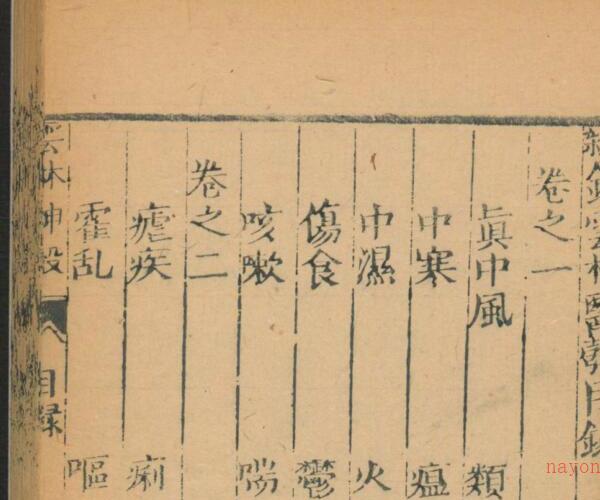 雲林醫彀目錄
卷之一
眞中風 類
中寒 瘟
中濕 火
傷食 鬱
咳嗽 喘
卷之二
瘧疾 痢
霍乱 嘔
雲林神彀 目録
nayon